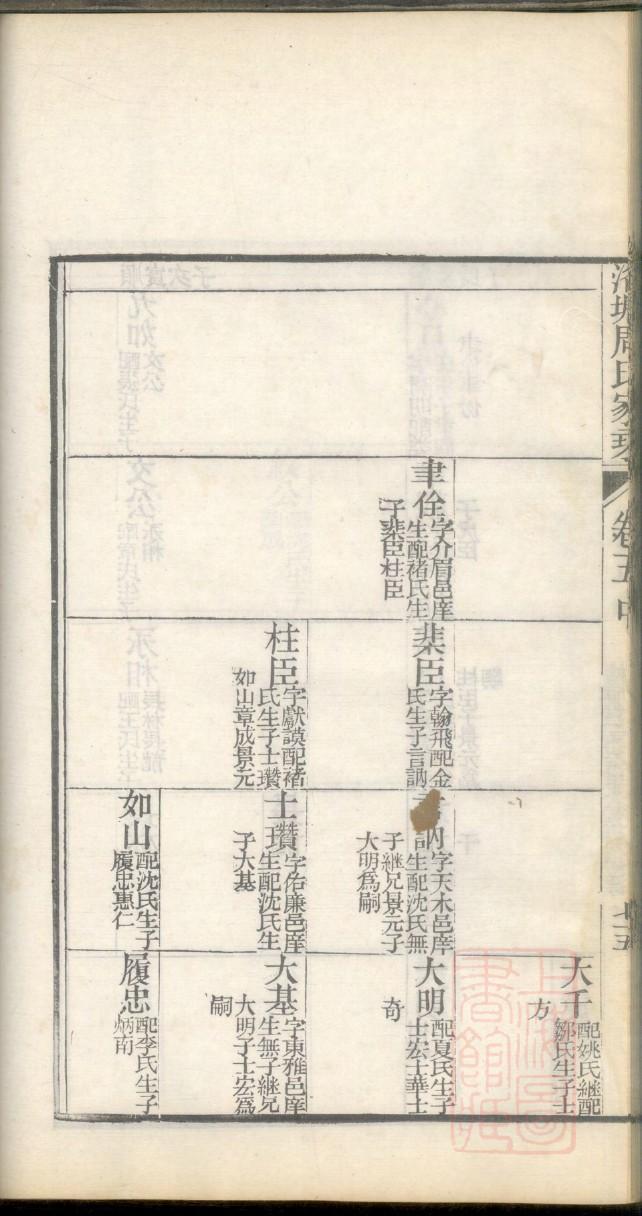 周氏家乘
卷五中
聿佺
字介眉邑庠
生配褚氏生
子棐臣柱臣
棐臣
字翰飛配金
氏生子言訥
柱臣
字獻謨配褚
氏生子士瓚
如山章成景元
訥
字天木邑庠
生配沈氏無
子繼兄景元子
大明為嗣
士瓚
字佑廉邑庠
生配沈氏生
子大基
如山
配沈氏生子
履忠惠仁
大千
配姚氏繼配
鄒氏生子士
方
大明
配夏氏生子
士宏士華士
奇
大基
字東雅邑庠
生無子繼兄
大明子士宏為
嗣
履忠
配李氏生子
炳南